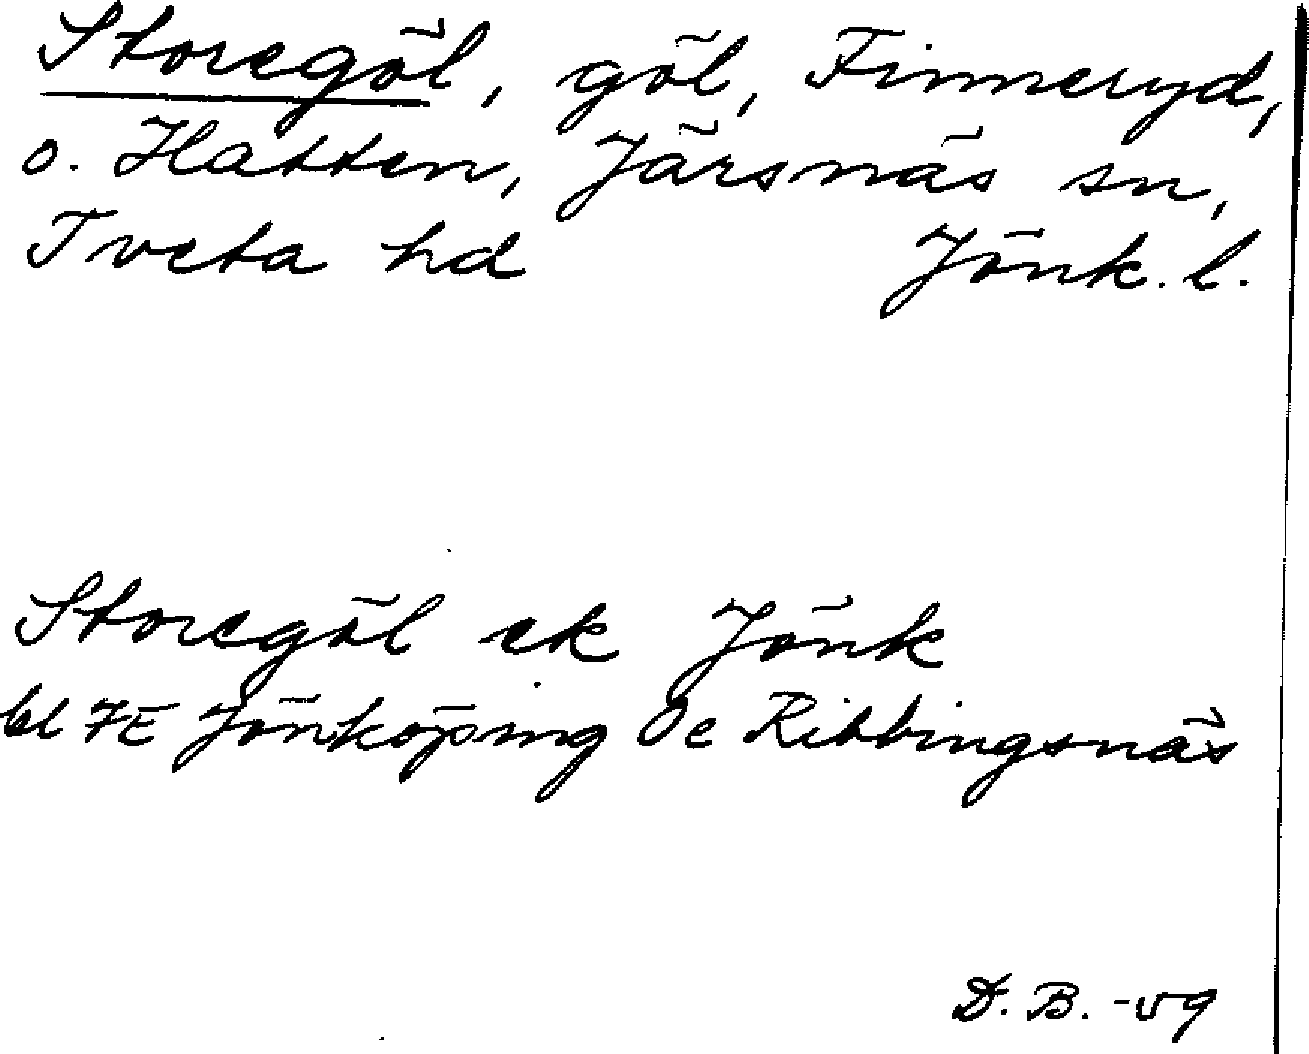 Storegöl, göl, Finneryd,
o. Hatten, Järsnäs sn,
Tveta hd Jönk. l.
Storegöl ek Jönk
bl 7E Jönköping 0e Ribbingsnäs
D. B. -59